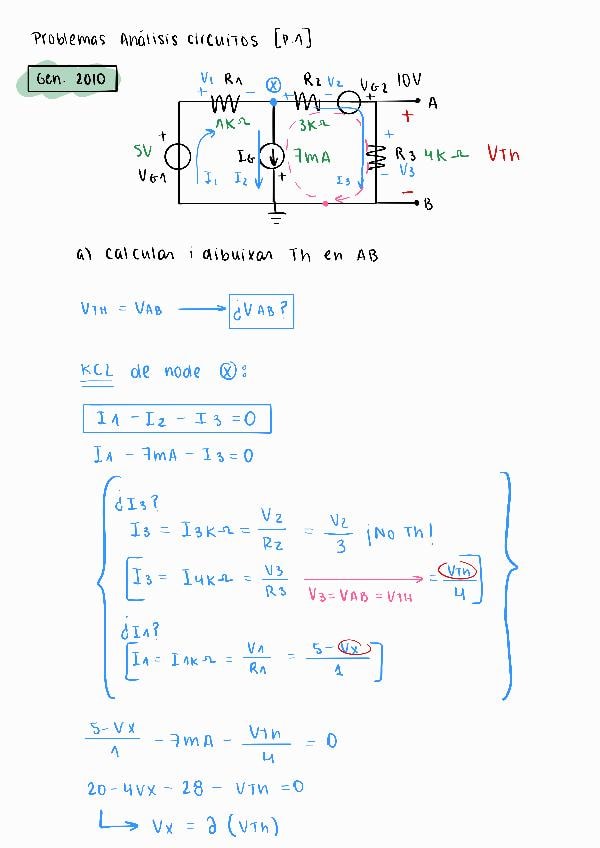 Problemas Análisis Circuitos [P.1]
Gen. 2010
V1 R1 X R2 V2 VG2 10V
+ - + - + A
1KΩ 3KΩ +
5V + IG 7mA + R3 4KΩ VTh
VG1 I1 I2 + I3 - V3
- B
a) Calcular i dibuixar Th en AB
VTH = VAB → ¿VAB?
KCL de node X:
I1 - I2 - I3 = 0
I1 - 7mA - I3 = 0
¿I3?
I3 = I3KΩ = V2/R2 = V2/3 ¡No Th!
[I3 = I4KΩ = V3/R3 V3 = VAB = VTH → = VTh/4]
¿I1?
[I1 = I1KΩ = V1/R1 = 5-Vx/1]
5-Vx/1 - 7mA - VTh/4 = 0
20 - 4Vx - 28 - VTh = 0
↳ Vx = ∂ (VTh)